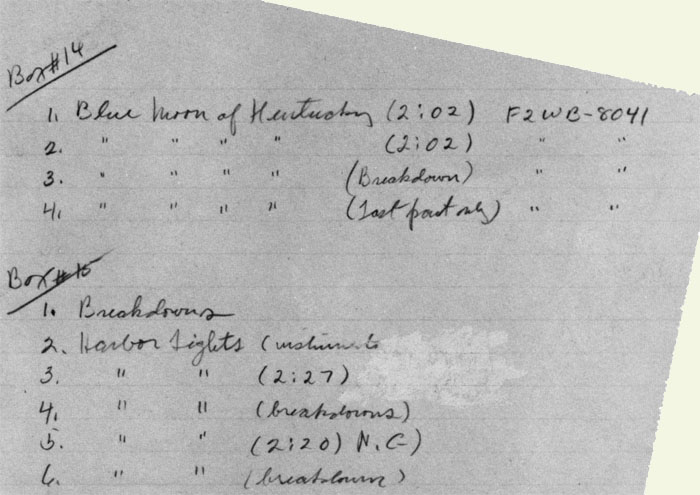 Box #14
1. Blue Moon of Kentucky (2:02) F2WB-8041
2. " " " " (2:02) " "
3. " " " " (Breakdown) " "
4. " " " " (Last part only) " "
Box #15
1. Breakdowns
2. Harbor Lights
3. " " (2:27)
4. " " (breakdowns)
5. " " (2:20) N.G)
6. " " (breakdown)